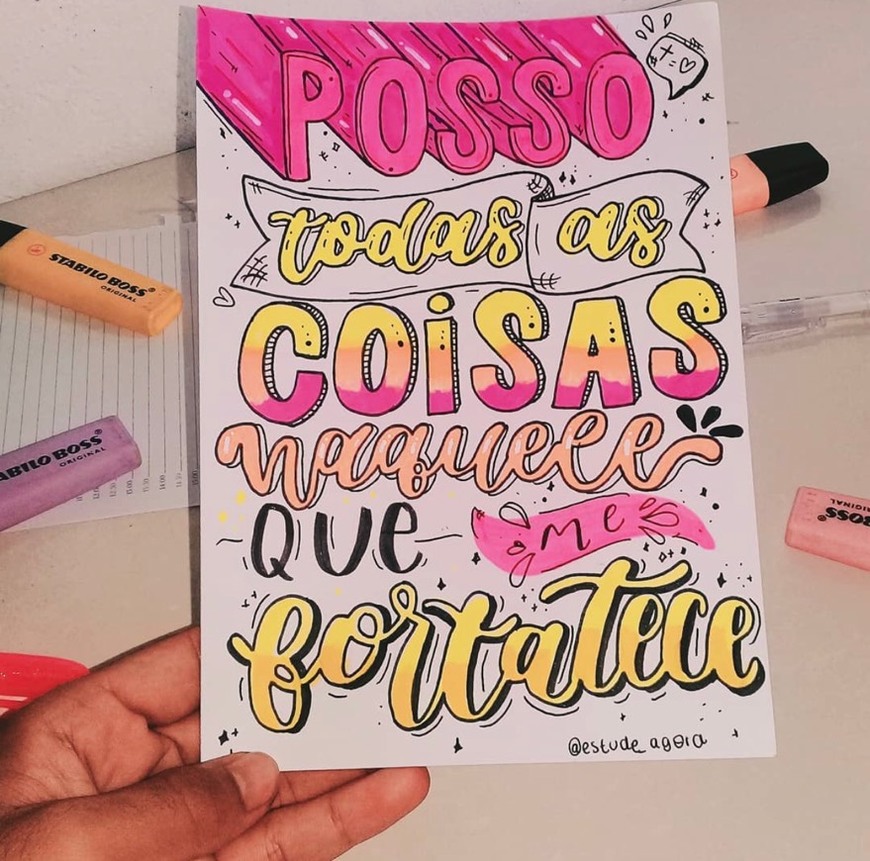 POSSO
todas as
COiSAS
naquele
QUE ME
fortatece
@estude_agora
STABILO BOSS
ORIGINAL
ABILO BOSS
ORIGINAL
BOSS
RIGINAL